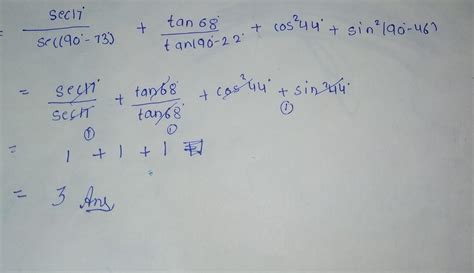 = sec17° / sec(90°-73) + tan 68° / tan(90-22° + cos²44° + sin²(90-46)
= sec17° / sec17° + tan68° / tan68° + cos²44° + sin²44°
① ① ①
= 1 + 1 + 1
= 3 Ans